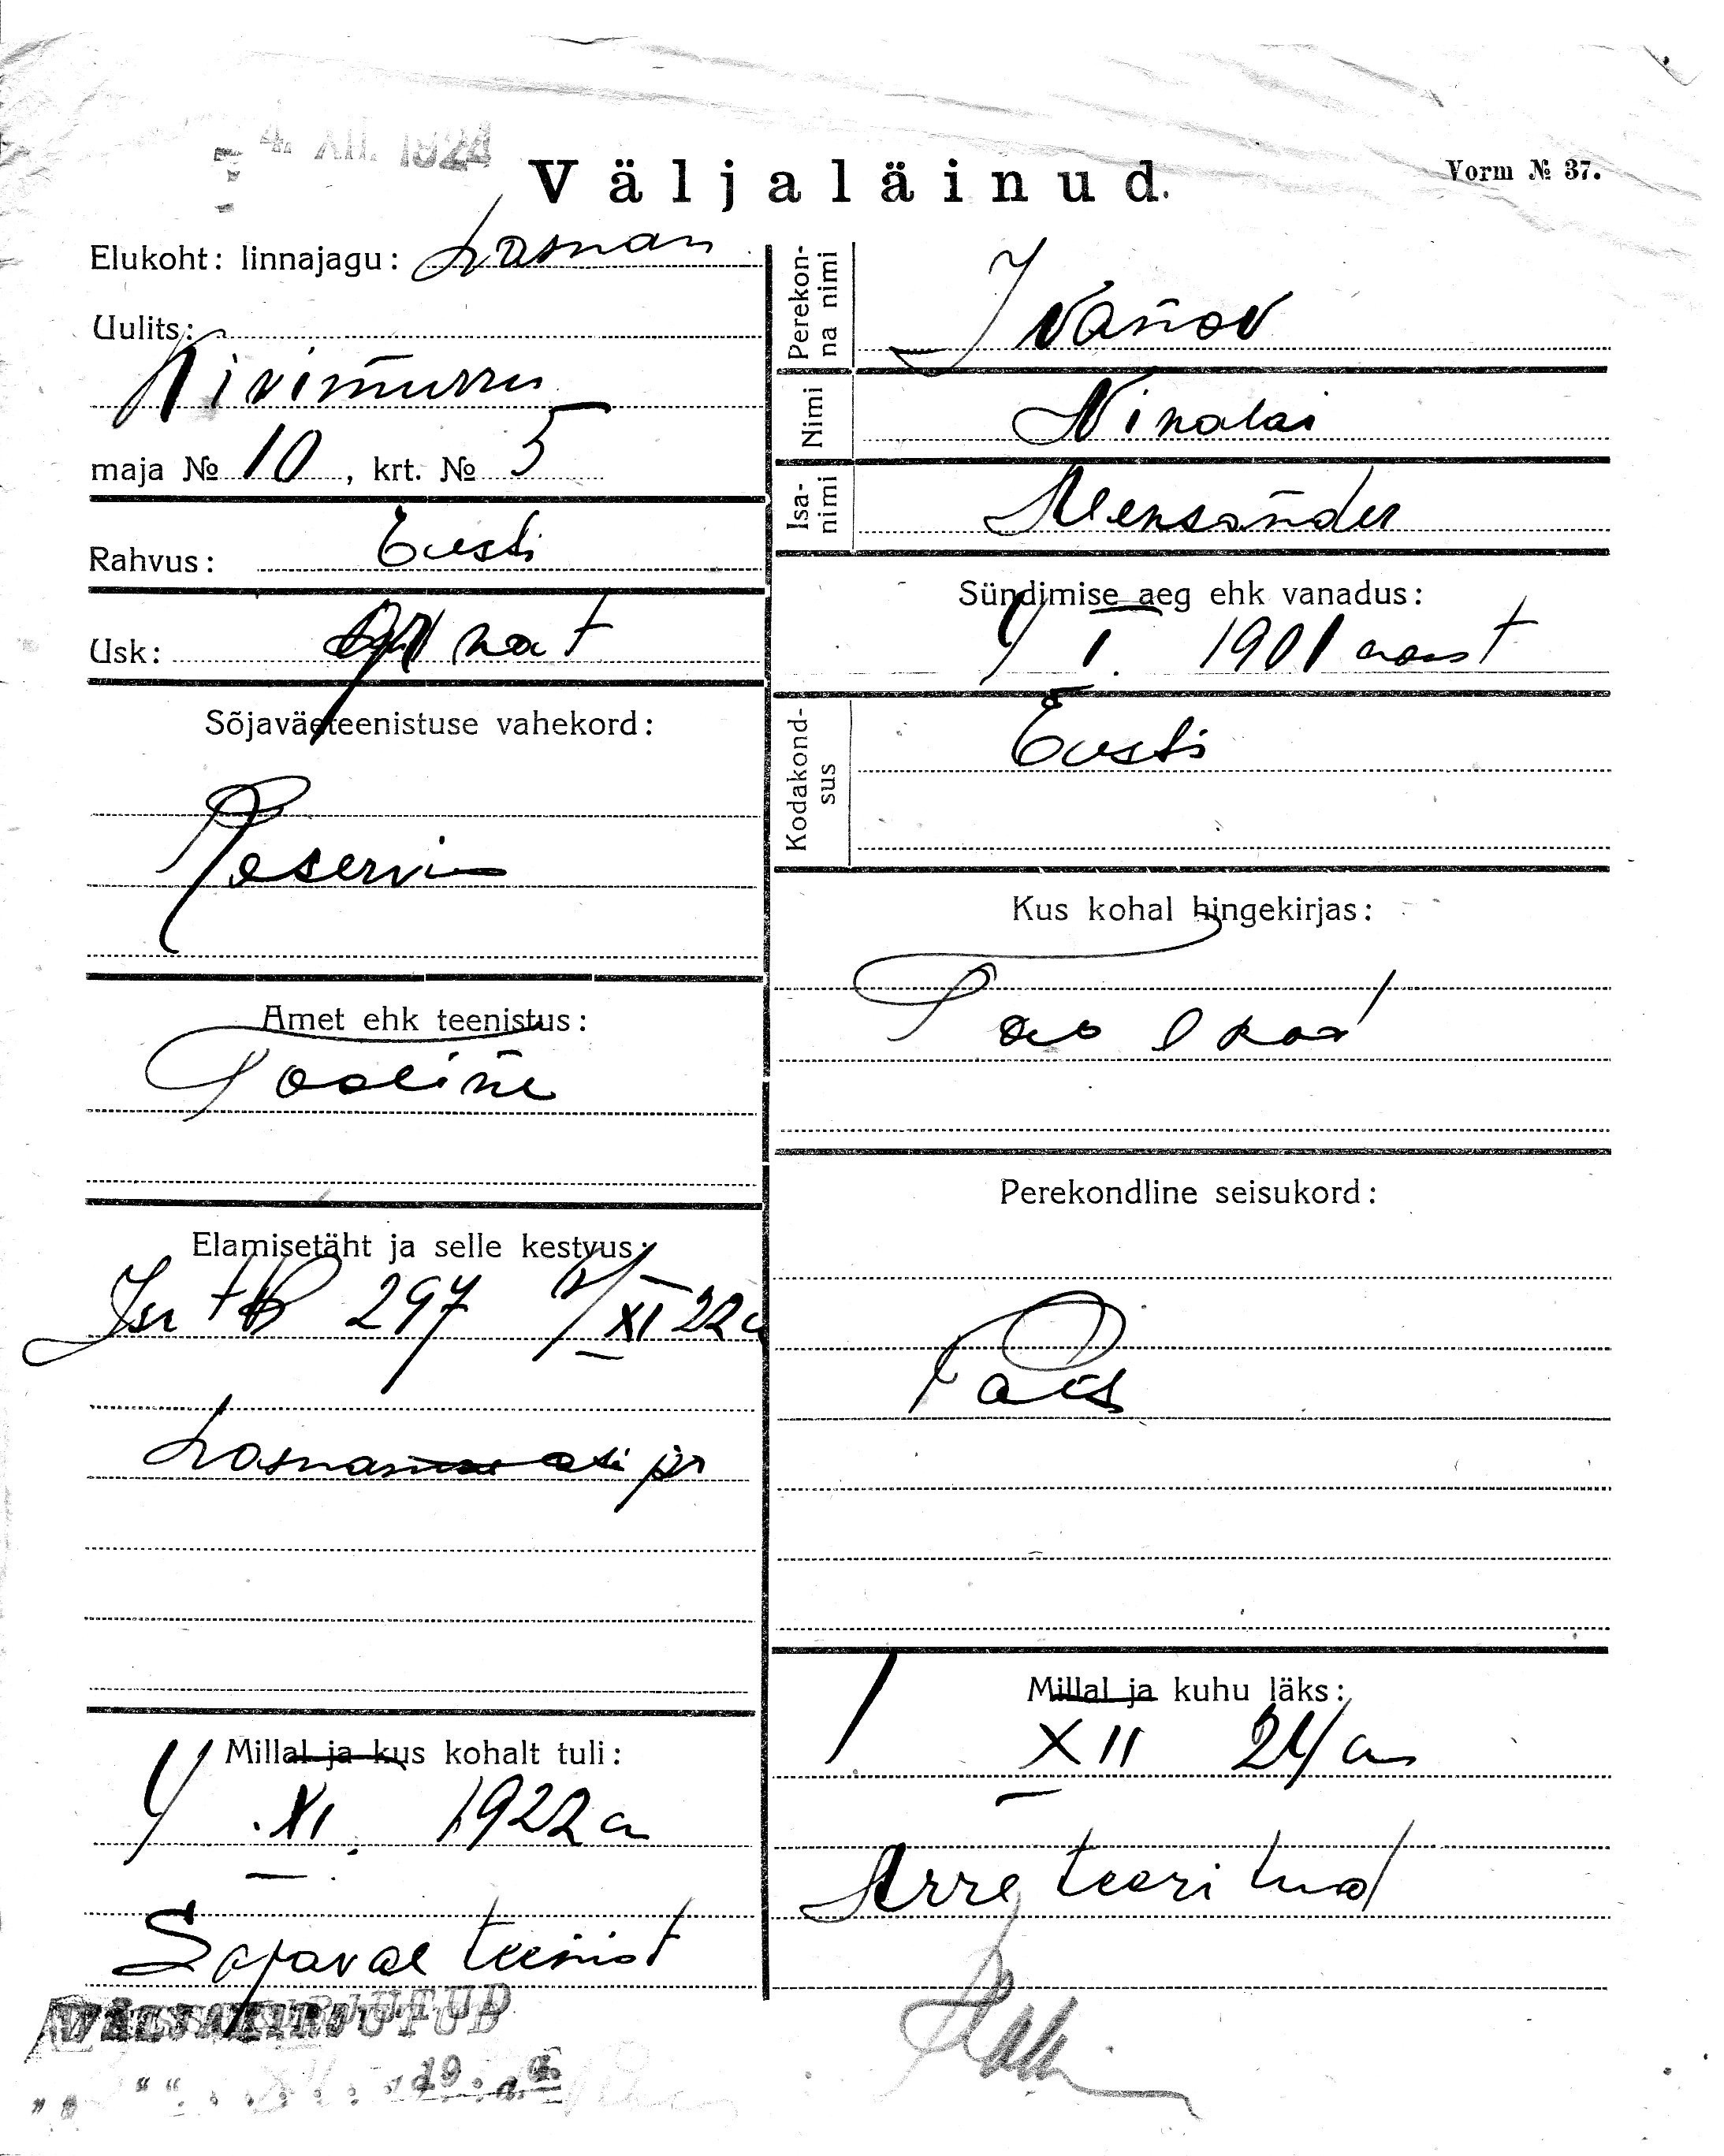 4. XII. 1924
Väljaläinud.
Vorm № 37.
Elukoht: linnajagu: Lasnam
Uulits:
Kivimurru
maja № 10, krt. № 5
Rahvus: Eesti
Usk:
Sõjaväeteenistuse vahekord:
Reservis
Amet ehk teenistus:
Tööline
Elamisetäht ja selle kestvus:
Isr tB 297 4/XI 22 a
Lasnam
Millal ja kus kohalt tuli:
4/ XI. 1922 a
Sõjaväe teenist
VÄLJAKIRJUTUD
19
Perekonna nimi
Ivanov
Nimi
Nikolai
Isa-nimi
Aleksander
Sündimise aeg ehk vanadus:
4/ I. 1901 aast
Kodakond-sus
Eesti
Kus kohal hingekirjas:
Perekondline seisukord:
Millal ja kuhu läks:
/ XII 24/a
Arreteeritud